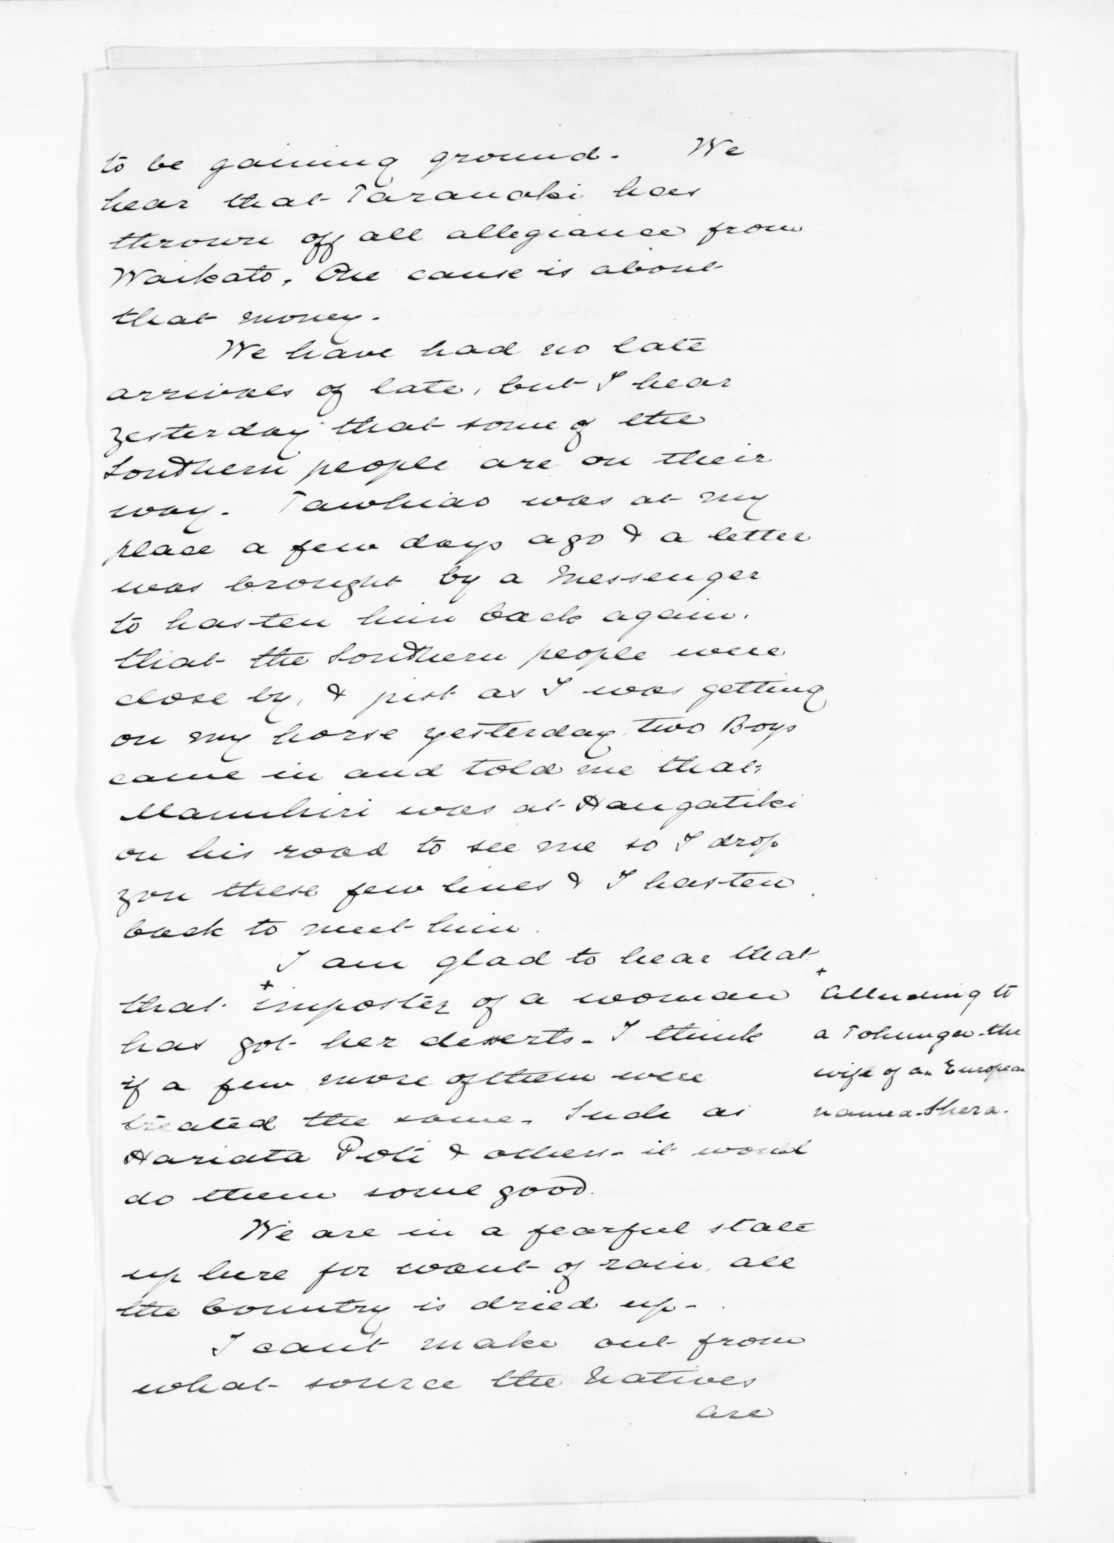 to be gaining ground. We
hear that Taranaki has
thrown off all allegiance from
Waikato. One cause is about
that money.
We have had no late
arrivals of late, but I hear
yesterday that some of the
Southern people are on their
way. Tawhiao was at my
place a few days ago & a letter
was brought by a Messenger
to hasten him back again.
that the Southern people were
close by, & just as I was getting
on my horse yesterday two Boys
came in and told me that
Manuhiri was at Hangatiki
on his road to see me so I drop
you these few lines & I hasten
back to meet him.
I am glad to hear that
that + imposter of a woman
has got her deserts. I think
if a few more of them were
treated the same. Such as
Hariata Poti & others. it would
do them some good.
+ alluding to
a Tohunga - the
wife of an European
named Shera.
We are in a fearful state
up here for want of rain, all
the Country is dried up.
I cant make out from
what source the Natives
are